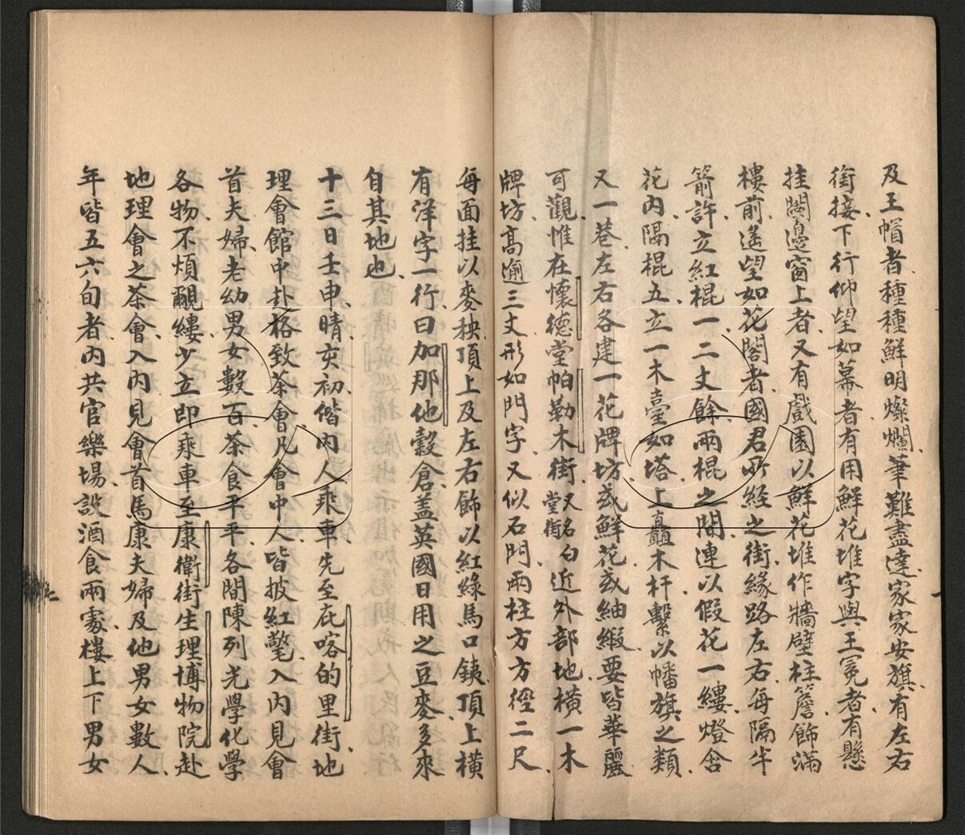 及王帽者種種鮮明燦爛筆難盡達家家安旗有左右
銜接下行仰望如幕者有用鮮花堆字與王冕者有懸
挂闌邊窗上者又有戲園以鮮花堆作牆壁柱簷飾滿
樓前遙望如花閣者國君所經之街緣路左右每隔半
箭許立紅棍一二丈餘兩棍之間連以假花一縷燈含
花內隔棍五立一木臺如塔上矗木杆繫以幡旗之類
又一巷左右各建一花牌坊或鮮花或紬緞要皆華麗
可觀惟在懷德堂帕勒木街又名勻堂街近外部地橫一木
牌坊高逾三丈形如門字又似石門兩柱方方徑二尺
每面挂以麥秧頂上及左右飾以紅綠馬口鐵頂上橫
有洋字一行曰加那他穀倉蓋英國日用之豆麥多來
自其地也
十三日壬申晴亥初偕內人乘車先至庇喀的里街地
理會館中赴格致茶會凡會中人皆披紅氅入內見會
首夫婦老幼男女數百茶食平平各間陳列光學化學
各物不煩覼縷少立即乘車至康衛街生理博物院赴
地理會之茶會入內見會首馬康夫婦及他男女數人
年皆五六旬者內共官樂場設酒食兩處樓上下男女